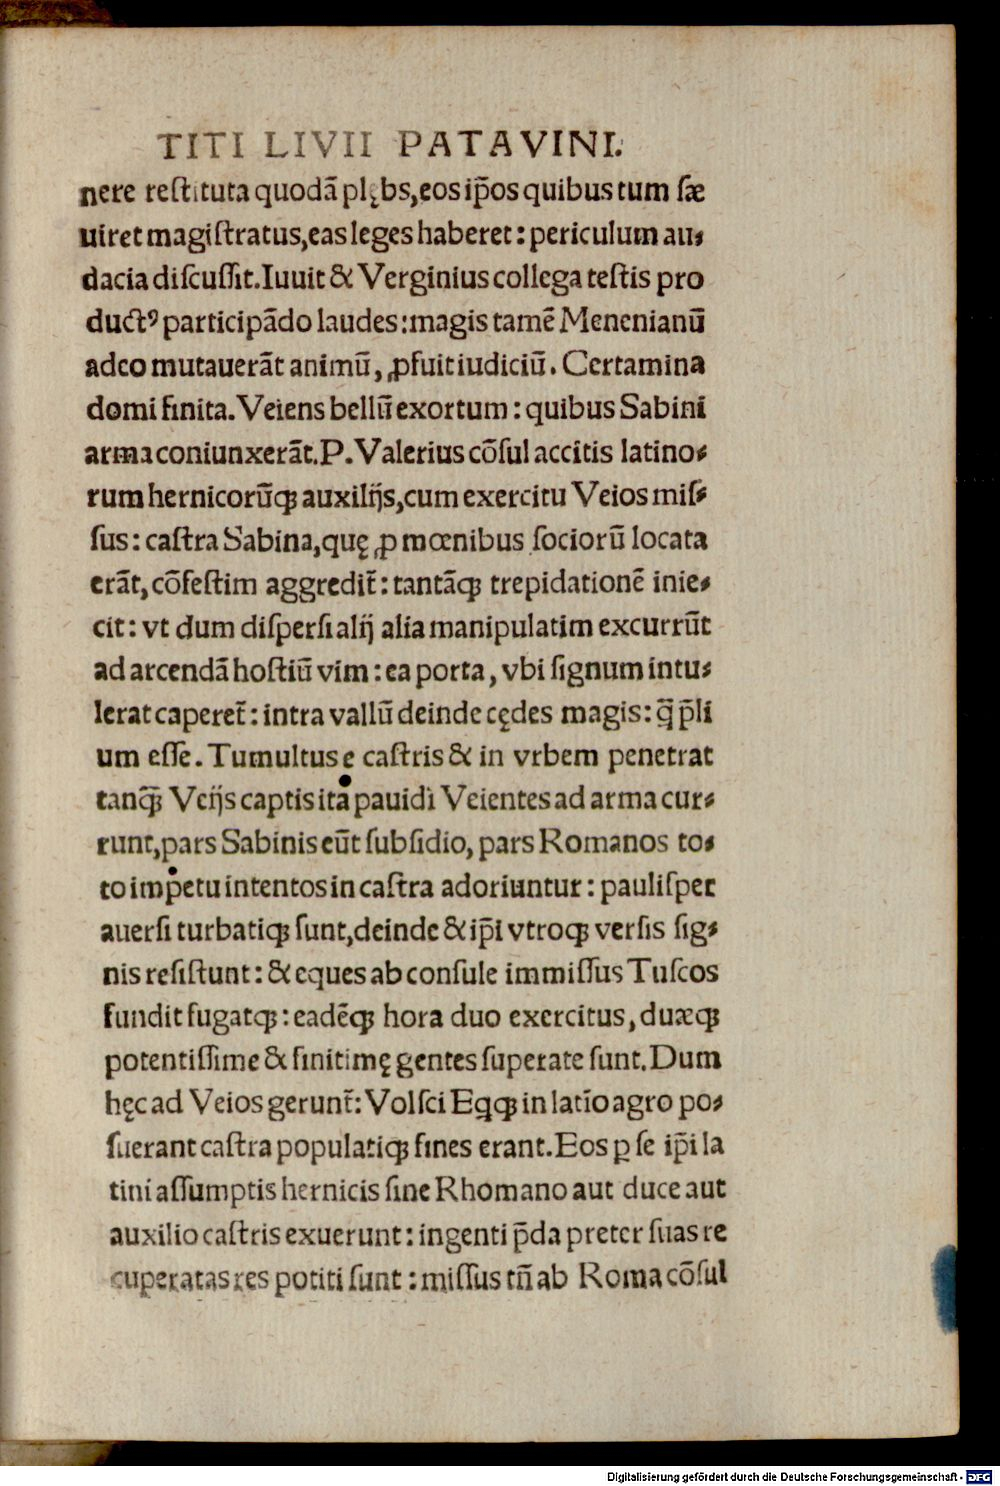 TITI LIVII PATAVINI.
nere reſtituta quodã plębs,eos ip̃os quibus tum ſæ
uiret magiſtratus,eas leges haberet: periculum au⸗
dacia diſcuſſit.Iuuit & Verginius collega teſtis pro
ductꝰ participãdo laudes:magis tamẽ Menenianũ
adeo mutauerãt animũ, ꝓfuit iudiciũ. Certamina
domi finita. Veiens bellũ exortum: quibus Sabini
arma coniunxerãt.P. Valerius cõſul accitis latino⸗
rum hernicorũqꝫ auxilijs,cum exercitu Veios miſ⸗
ſus: caſtra Sabina,quę ꝓ mœnibus ſociorũ locata
erãt,cõfeſtim aggredit̃: tantãqꝫ trepidationẽ inie⸗
cit: vt dum diſperſi alij alia manipulatim excurrũt
ad arcendã hoſtiũ vim: ea porta, vbi ſignum intu⸗
lerat caperet̃: intra vallũ deinde cędes magis: q̃ p̃li
um eſſe. Tumultus e caſtris & in vrbem penetrat
tanq̃ꝫ Veijs captis ita pauidi Veientes ad arma cur⸗
runt,pars Sabinis eũt ſubſidio, pars Romanos to⸗
to impetu intentos in caſtra adoriuntur: pauliſper
auerſi turbatiqꝫ ſunt,deinde & ip̃i vtroqꝫ verſis ſig⸗
nis reſiſtunt: & eques ab conſule immiſſus Tuſcos
fundit fugatqꝫ: eadẽqꝫ hora duo exercitus, duæqꝫ
potentiſſime & finitimę gentes ſuperate ſunt. Dum
hęc ad Veios gerunt̃: Volſci Eqqꝫ in latĩo agro po⸗
ſuerant caſtra populatiqꝫ fines erant. Eos ꝑ ſe ip̃i la
tini aſſumptis hernicis ſine Rhomano aut duce aut
auxilio caſtris exuerunt: ingenti p̃da preter ſuas re
cuperatas res potiti ſunt: miſſus tñ ab Roma cõſul
Digitalisierung gefördert durch die Deutsche Forschungsgemeinschaft - DFG